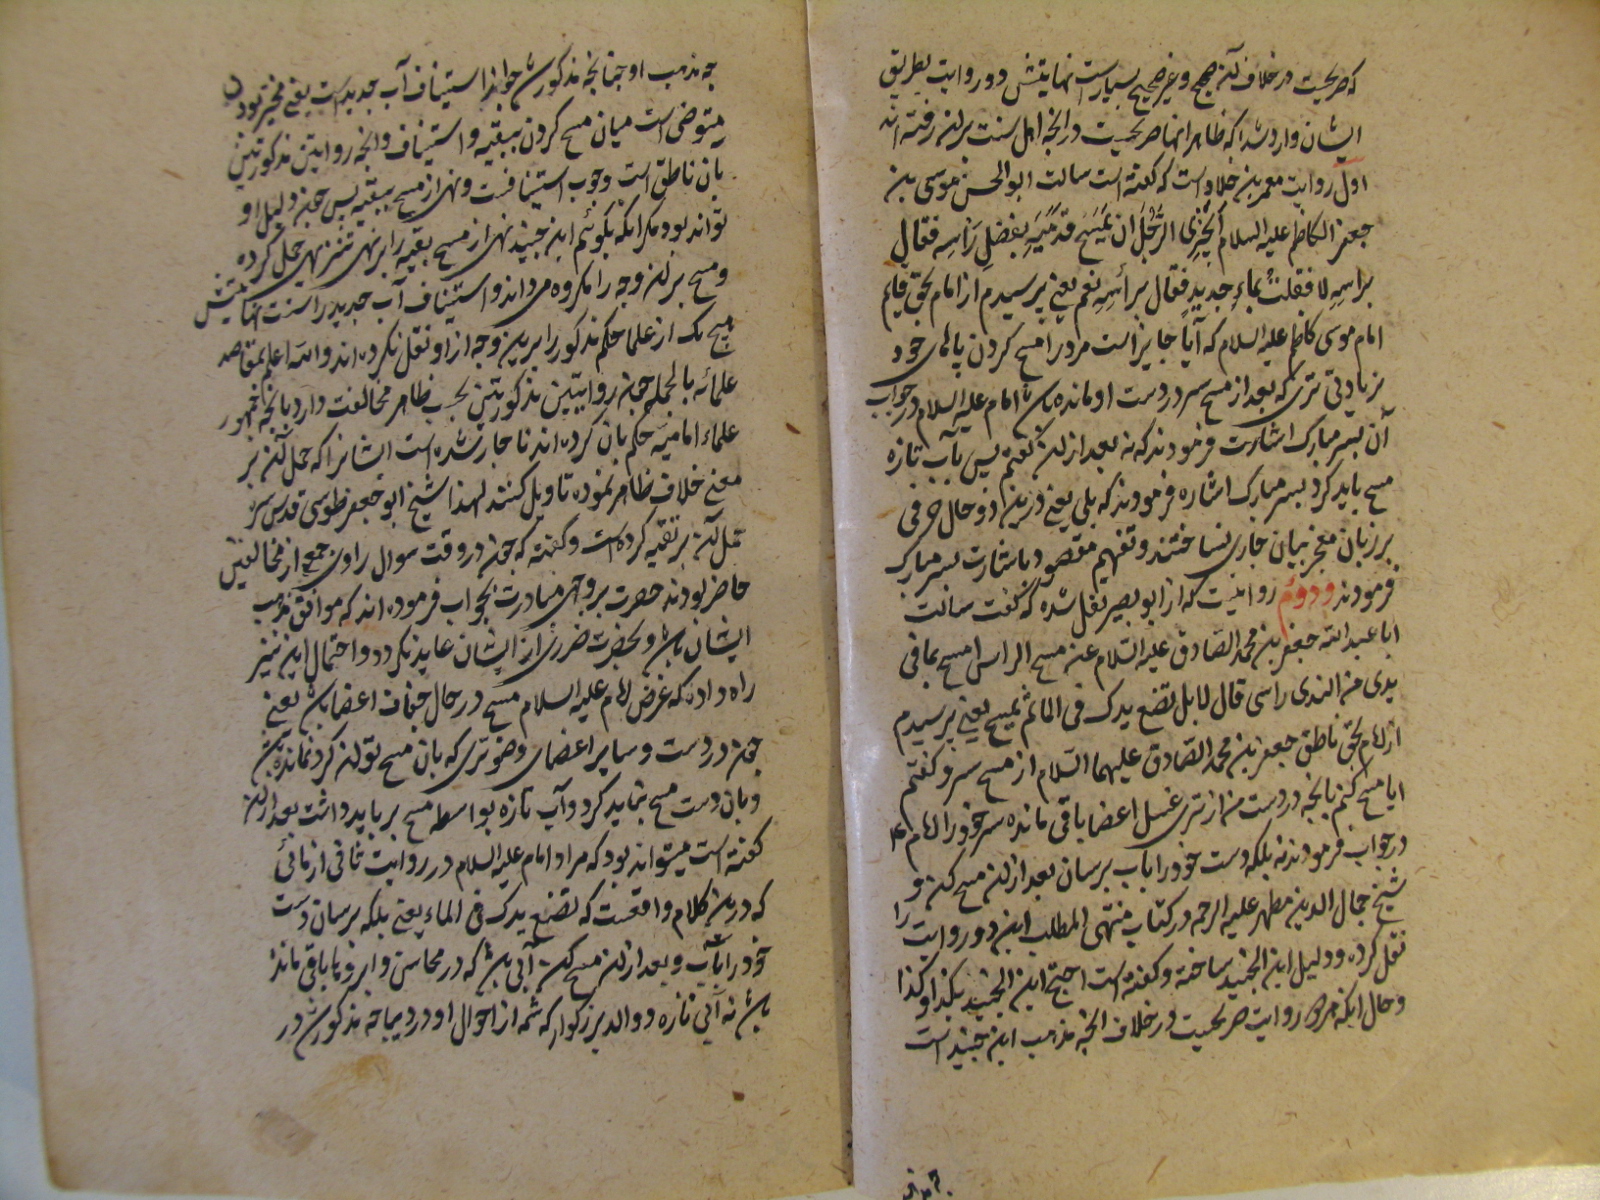 که صریحست در خلاف آن صحیح و غیر صحیح بسیار است نهایتش دو روایت بطریق
ایشان وارد شده که ظاهر آنها صریحست در آنچه اهل سنت بر آن رفته اند
اول روایت معمر بن خلاد است که گفته است سالت ابو الحسن موسی بن
جعفر الکاظم علیه السلام أیجزی الرّجل ان یمسح قدمیه بفضل رأسه فقال
برأسه لا فقلت بماء جدید فقال برأسه نعم یعنی پرسیدم از امام بحق قایم
امام موسی کاظم علیه السلام که آیا جایز است مرد را مسح کردن پاهای خود
بزیادتی تری که بعد از مسح سر در دست او مانده باشد امام علیه السلام در جواب
آن بسر مبارک اشارت فرمودند که نه بعد از آن گفتم پس بآب تازه
مسح باید کرد بسر مبارک اشاره فرمودند که بلی یعنی درین دو حال حرفی
بر زبان معجز بیان جاری نساختند و تفهیم مقصود باشارت بسر مبارک
فرمودند و دوّم روایتیست که از ابو بصیر نقل شده که گفت سالت
ابا عبد الله جعفر بن محمد الصّادق علیه السّلام عن مسح الراس امسح بما فی
یدی من الندی راسی قال لا بل تضع یدک فی الماء ثم تمسح یعنی پرسیدم
از امام بحق ناطق جعفر بن محمد الصّادق علیهما السّلام از مسح سر و گفتم
ایا مسح کنم بآنچه در دست من از تری غسل اعضا باقی مانده سر خود را امام ع
در جواب فرمودند نه بلکه دست خود را بآب برسان بعد از آن مسح کن و
شیخ جمال الدین مطهر علیه الرحمه در کتاب منتهی المطلب این دو روایت را
نقل کرده و دلیل ابن الجنید ساخته و گفته است احتج ابن الجنید بکذا و کذا
و حال آنکه هر دو روایت صریحست در خلاف آنچه مذهب ابن جنید است
چه مذهب
چه مذهب او چنانچه مذکور شد جواز استیناف آب جدید است یعنی مخیر بودن
متوضی است میان مسح کردن ببقیه و استیناف و آنچه روایتین مذکورتین
بان ناطق است وجوب استینافست و نهی از مسح ببقیه پس چون دلیل او
تواند بود مکر آنکه بکوئیم ابن جنید نهی از مسح بقیه را بر نهی تنزیهی حمل کرده
و مسح بر آن وجه را مکروه می داند و استیناف آب جدید را سنت نهایتش
هیچ یک از علما حکم مذکور را برین وجه از او نقل نکرده اند و الله اعلم بمقاصد
علمائه بالجمله چون روایتین مذکورتین بحسب ظاهر مخالفت دارد بآنچه جمهور
علماء امامیه حکم بان کرده اند ناچار شده است ایشانرا که حمل آن بر
معنی خلاف ظاهر نموده تاویل کنند لهذا شیخ ابو جعفر طوسی قدس سره
حمل آن بر تقیه کرده است و گفته که چون در وقت سوال راوی جمعی از مخالفین
حاضر بودند حضرت بر وجهی مبادرت بجواب فرموده اند که موافق مذهب
ایشان باشد و بحضرت ضرری از ایشان عاید نکردد و احتمال این نیز
راه داده که غرض امام علیه السلام مسح در حال جفاف اعضا باشد یعنی
چون در دست و سایر اعضای وضو تری که بان مسح توان کرد نمانده باشد
و بان دست مسح نباید کرد و آب تازه بواسطه مسح بر باید داشت بعد از آن
گفته است میتواند بود که مراد امام علیه السلام در روایت ثانی از مائی
که درین کلام واقعست که تضع یدک فی الماء یعنی بلکه برسان دست
خود را بآب و بعد از آن مسح کن آبی باشد که در محاسن و ابروها باقی مانده
باشد نه آبی تازه و والد بزرکوار که شمه از احوال او در دیباجه مذکور شد در